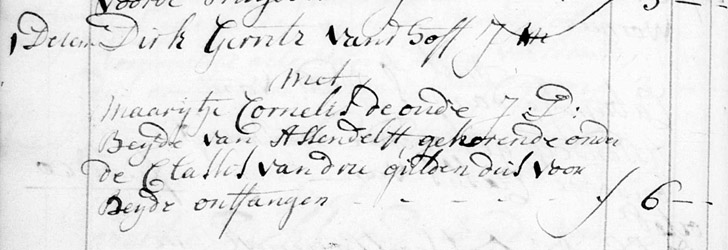 1 Decem Dirk Gerritz vand hoff J: M:
met
Maarijtje Cornelis de oude J: D:
Beyde van Assendelft gehorende onder
de Classis van drie gulden dus voor
Beyde ontfangen - - - - ƒ 6 —